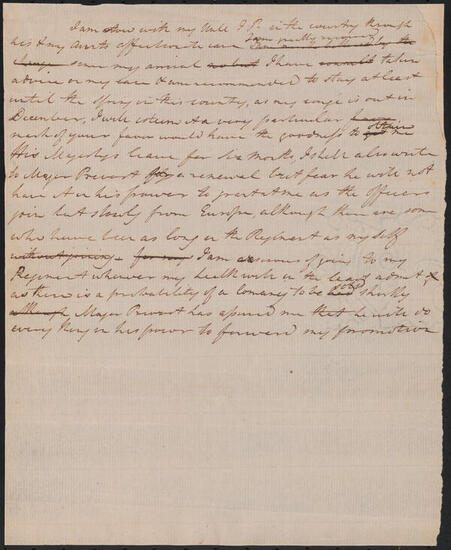 I am now with my Uncle J P. in the country through
his & my Aunts affectionate care I am pretty
since my arrival I have taken
advice on my case & am recommended to stay at least
until the spring in this country, as my is out in
December, I will esteem it a very particular
mark of your favor would have the goodness to obtain me
His Majestys leave for Six Months, I shall also write
to Major Prevost for a renewal but fear he will not
have it in his power to grant it me as the Officers
join but slowly from Europe, although there are some
who have been as long in the Regiment as myself
I am of going to my
Regiment whenever my health will in the least admit &
as there is a probability of a to be sold shortly
Major Prevost has assured me that he will do
every thing in his power to forward my promotion